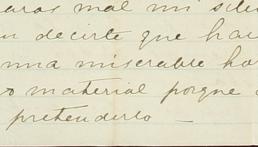 mal mi
decirte que
una miserable
material porque
pretenderlo —